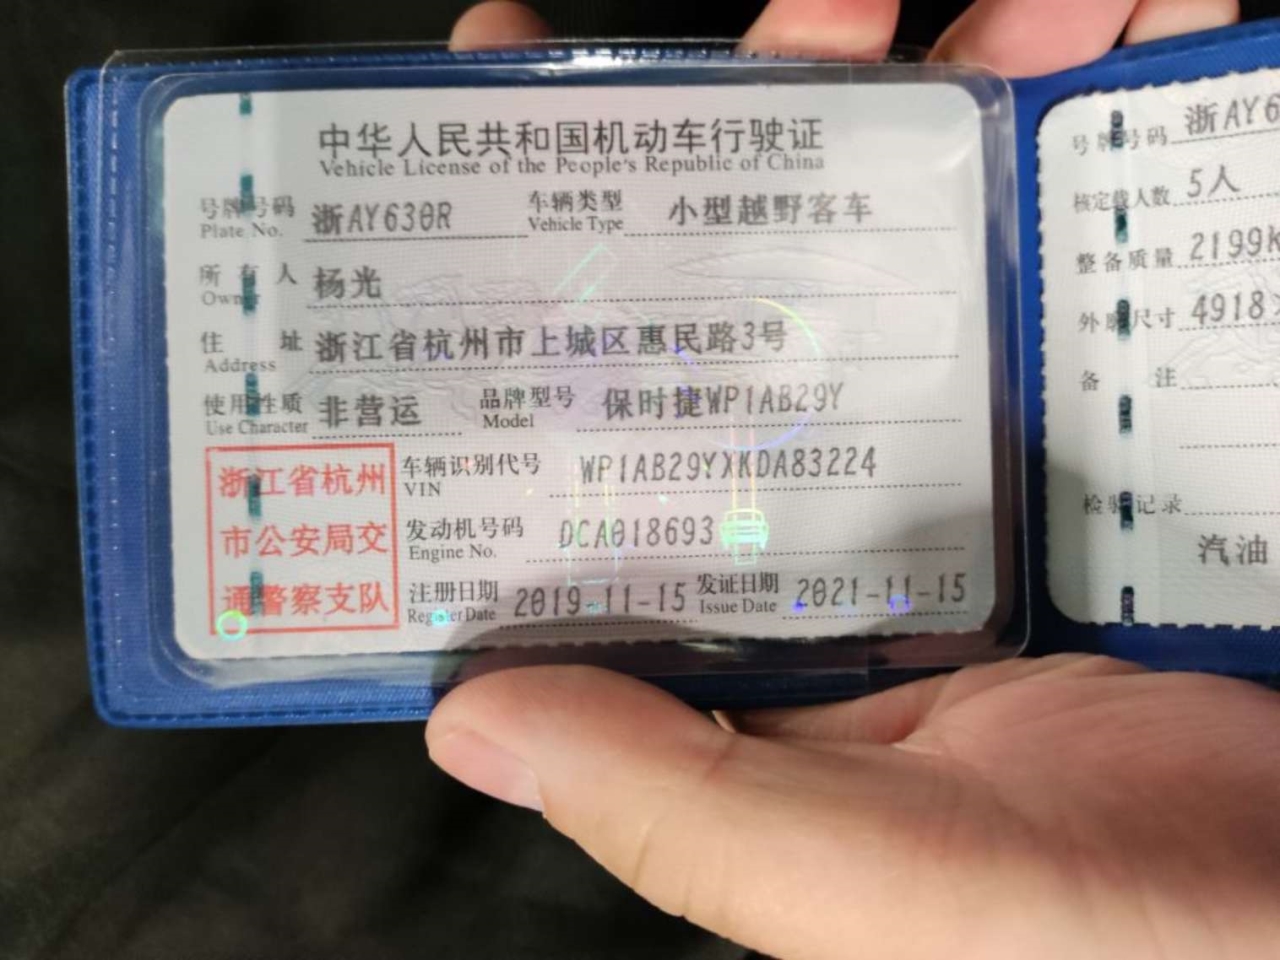 中华人民共和国机动车行驶证
Vehicle License of the People's Republic of China
号牌号码 浙AY630R 车辆类型 小型越野客车
Plate No. Vehicle Type
所有人 杨光
Owner
住址 浙江省杭州市上城区惠民路3号
Address
使用性质 非营运 品牌型号 保时捷WP1AB29Y
Use Character Model
浙江省杭州
市公安局交
通警察支队
车辆识别代号 WP1AB29YXKDA83224
VIN
发动机号码 DCA018693
Engine No.
注册日期 2019-11-15 发证日期 2021-11-15
Register Date Issue Date
号牌号码 浙AY6
核定载人数 5人
整备质量 2199k
外廓尺寸 4918
备注
检验记录
汽油